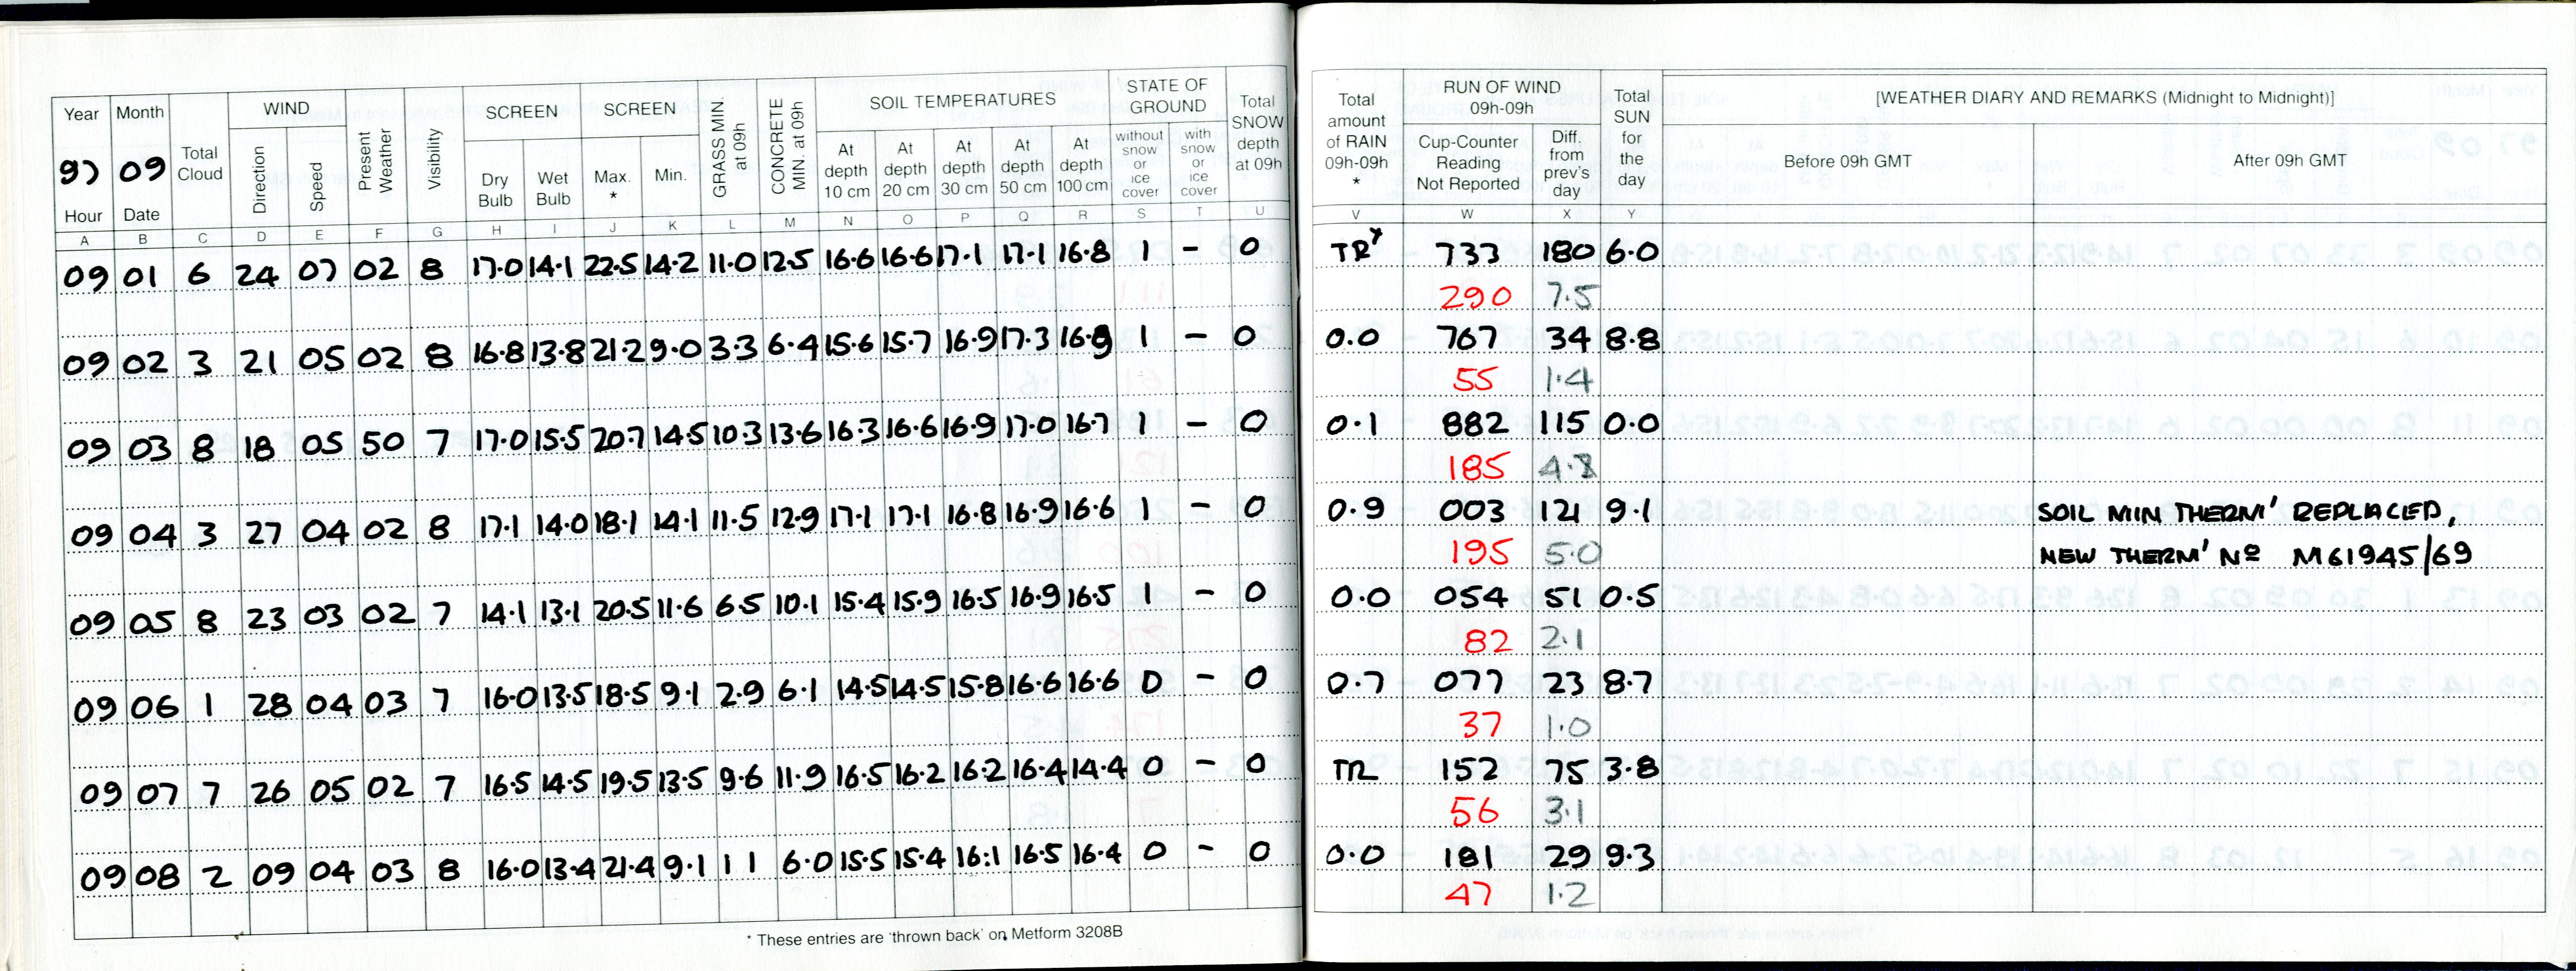 Year Month Total Cloud WIND Present Weather Visibility SCREEN SCREEN GRASS MIN. at 09h CONCRETE MIN. at 09h SOIL TEMPERATURES STATE OF GROUND Total SNOW depth at 09h Total amount of RAIN 09h-09h * RUN OF WIND 09h-09h Total SUN for the day [WEATHER DIARY AND REMARKS (Midnight to Midnight)]
97 09 Direction Speed Dry Bulb Wet Bulb Max. * Min. At depth 10 cm At depth 20 cm At depth 30 cm At depth 50 cm At depth 100 cm without snow or ice cover with snow or ice cover Cup-Counter Reading Not Reported Diff. from prev's day Before 09h GMT After 09h GMT
Hour Date
A B C D E F G H I J K L M N O P Q R S T U V W X Y
09 01 6 24 07 02 8 17.0 14.1 22.5 14.2 11.0 12.5 16.6 16.6 17.1 17.1 16.8 1 - 0 TR* 733 180 6.0
290 7.5
09 02 3 21 05 02 8 16.8 13.8 21.2 9.0 3.3 6.4 15.6 15.7 16.9 17.3 16.8 1 - 0 0.0 767 34 8.8
55 1.4
09 03 8 18 05 50 7 17.0 15.5 20.7 14.5 10.3 13.6 16.3 16.6 16.9 17.0 16.7 1 - 0 0.1 882 115 0.0
185 4.8
09 04 3 27 04 02 8 17.1 14.0 18.1 14.1 11.5 12.9 17.1 17.1 16.8 16.9 16.6 1 - 0 0.9 003 121 9.1 SOIL MIN THERM' REPLACED,
195 5.0 NEW THERM' No M61945/69
09 05 8 23 03 02 7 14.1 13.1 20.5 11.6 6.5 10.1 15.4 15.9 16.5 16.9 16.5 1 - 0 0.0 054 51 0.5
82 2.1
09 06 1 28 04 03 7 16.0 13.5 18.5 9.1 2.9 6.1 14.5 14.5 15.8 16.6 16.6 0 - 0 0.7 077 23 8.7
37 1.0
09 07 7 26 05 02 7 16.5 14.5 19.5 13.5 9.6 11.9 16.5 16.2 16.2 16.4 14.4 0 - 0 TR 152 75 3.8
56 3.1
09 08 2 09 04 03 8 16.0 13.4 21.4 9.1 1 1 6.0 15.5 15.4 16.1 16.5 16.4 0 - 0 0.0 181 29 9.3
47 1.2
* These entries are 'thrown back' on Metform 3208B